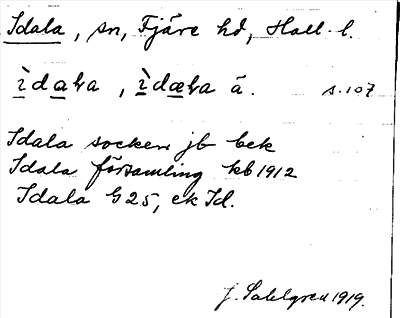 Idala, sn, Fjäre hd, Hall. l.
ìdała, ìdæła ä. s. 107
Idala socken jb bek
Idala församling kb 1912
Idala G25, ek Id.
J. Sahlgren 1919.